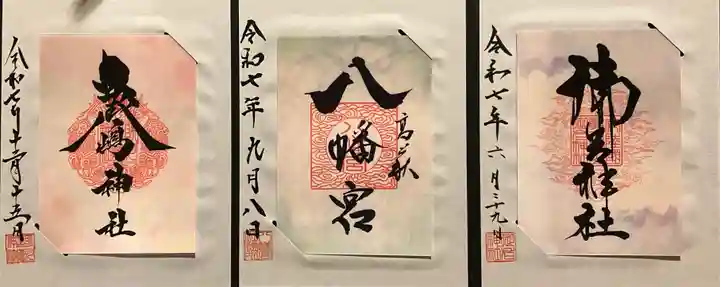 令和七年十一月十五日
嶋神社
令和七年九月八日
八幡宮
高萩
令和七年六月二十九日
神社